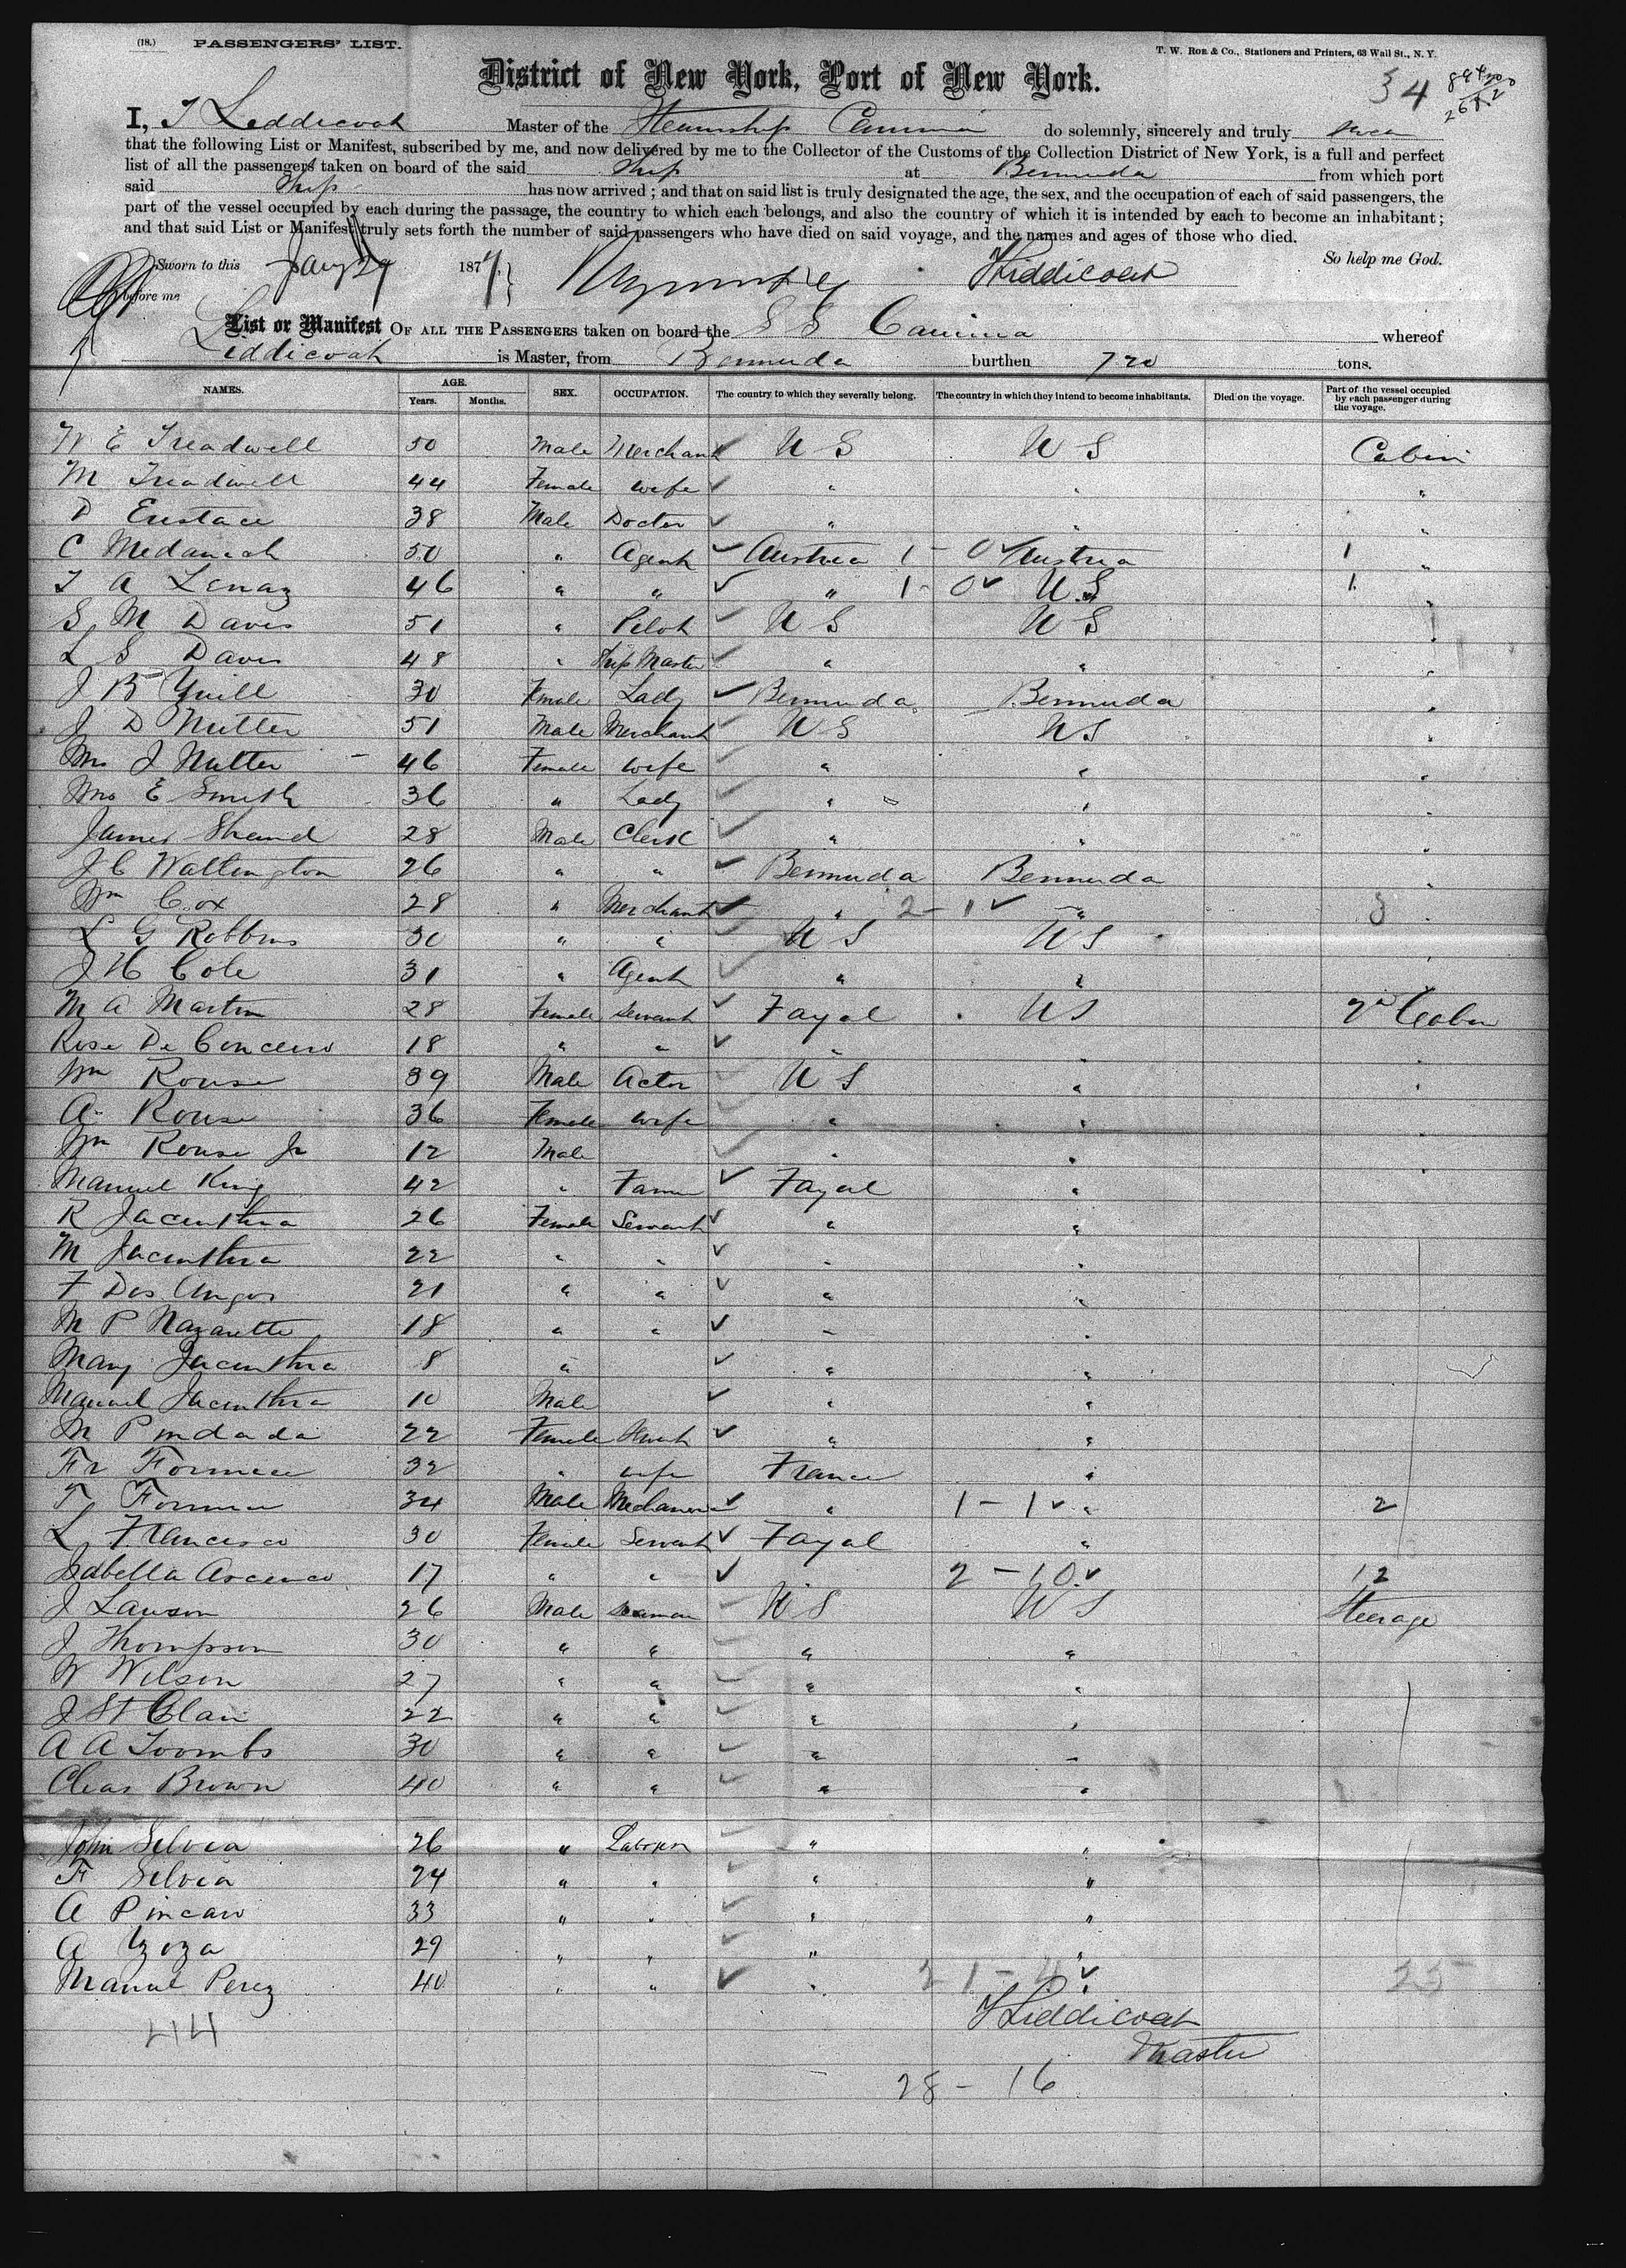 (18.) PASSENGERS' LIST.
T. W. ROE & Co., Stationers and Printers, 63 Wall St., N. Y.
District of New York, Port of New York.
34
I, T Liddicoat Master of the Steamship Canima do solemnly, sincerely and truly swear
that the following List or Manifest, subscribed by me, and now delivered by me to the Collector of the Customs of the Collection District of New York, is a full and perfect
list of all the passengers taken on board of the said Ship at Bermuda from which port
said Ship has now arrived; and that on said list is truly designated the age, the sex, and the occupation of each of said passengers, the
part of the vessel occupied by each during the passage, the country to which each belongs, and also the country of which it is intended by each to become an inhabitant;
and that said List or Manifest truly sets forth the number of said passengers who have died on said voyage, and the names and ages of those who died.
Sworn to this Jany 29 187 So help me God.
before me TLiddicoat
List or Manifest OF ALL THE PASSENGERS taken on board the S S Canima whereof
Liddicoat is Master, from Bermuda burthen 720 tons.
NAMES. AGE. Years. Months. SEX. OCCUPATION. The country to which they severally belong. The country in which they intend to become inhabitants. Died on the voyage. Part of the vessel occupied by each passenger during the voyage.
W E Treadwell 50 Male Merchant ✓ U S U S Cabin
M Treadwell 44 Female wife ✓ " " "
D Eustace 38 Male Doctor ✓ " " "
C Medanich 50 " Agent ✓ Austria 1 - 0 ✓ Austria 1 "
T A Lenaz 46 " " ✓ " 1 - 0 ✓ U.S 1 "
S M Davis 51 " Pilot ✓ U S U S "
L S Davis 48 " Ship Master ✓ " " "
J B Yuill 30 Female Lady ✓ Bermuda Bermuda "
J D Nutter 51 Male Merchant ✓ U S U S "
Mrs J Nutter 46 Female wife ✓ " " "
Mrs E Smith 36 " Lady ✓ " " "
James Shand 28 Male Clerk ✓ " " "
J C Watlington 26 " " ✓ Bermuda Bermuda "
Wm Cox 28 " Merchant ✓ " 2 - 1 ✓ " "
L G Robbins 30 " " ✓ U S U S "
J H Cole 31 " Agent ✓ " " "
M A Martin 28 Female Servant ✓ Fayal U S 2d Cabin
Rose De 18 " " ✓ " " "
Wm Rouse 39 Male Actor ✓ U S " "
A Rouse 36 Female wife ✓ " " "
Wm Rouse Jr 12 Male ✓ " " "
Manuel King 42 " Farmer ✓ Fayal "
R Jacinthia 26 Female Servant ✓ " "
M Jacinthia 22 " " ✓ " "
F Dos Anjos 21 " " ✓ " "
M P Nazarette 18 " " ✓ " "
Mary Jacinthia 8 " ✓ " "
Manuel Jacinthia 10 Male ✓ " "
M Pindada 22 Female Servt ✓ " "
32 " wife France "
34 Male Mechanic ✓ " 1 - 1 ✓ " 2
L Francisco 30 Female Servant ✓ Fayal "
Isabella 17 " " ✓ 2 - 10 ✓ 12
J Lawson 26 Male Seaman ✓ U S U S Steerage
J Thompson 30 " " ✓ " "
W Wilson 27 " " ✓ " "
J St Clair 22 " " ✓ " "
A A Toombs 30 " " ✓ " "
Chas Brown 40 " " ✓ " "
John Selvia 26 " Laborer ✓ " "
F Selvia 24 " " ✓ " "
A Pincaro 33 " " ✓ " "
A 29 " " ✓ " "
Manuel Perez 40 " " ✓ " 21 - 4 ✓ " 25
TLiddicoat
Master
44
28 - 16